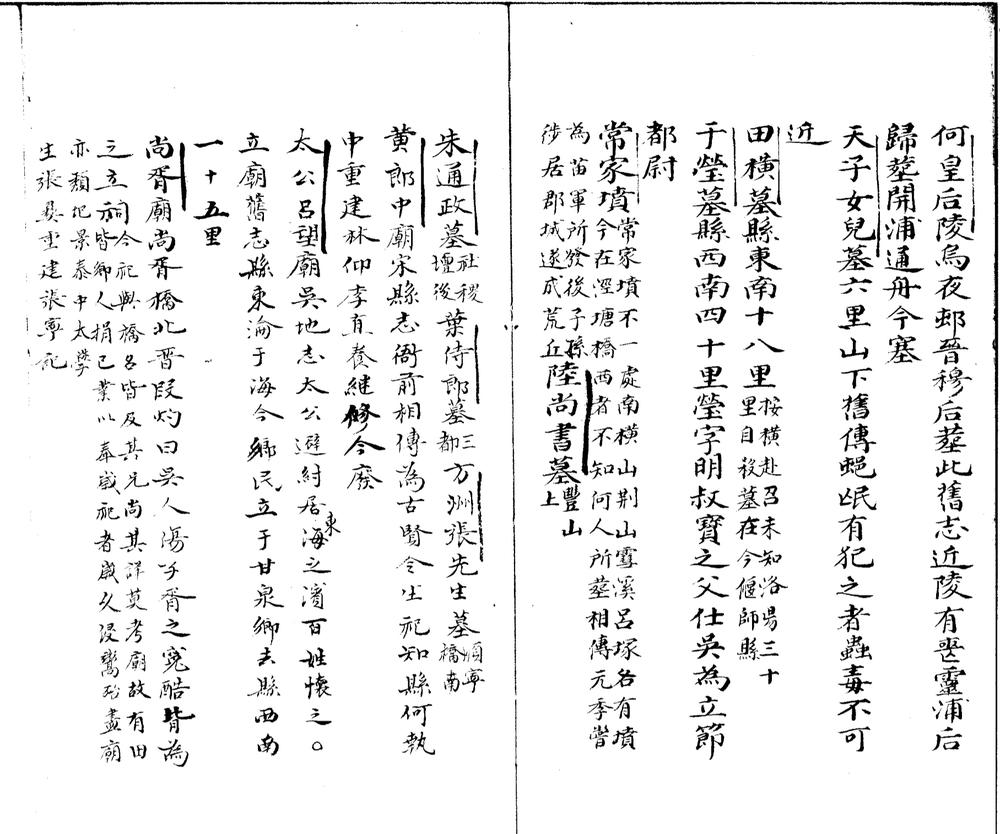 何皇后陵烏夜邨晉穆后塟此舊志近陵有喪靈浦后
歸塟開浦通舟今塞
天子女兒墓六里山下舊傳蜒氓有犯之者蟲毒不可
近
田橫墓縣東南十八里按橫赴召未知洛陽三十
里自殺墓在今偃師縣
于瑩墓縣西南四十里瑩字明叔寶之父仕吳為立節
都尉
常家墳常家墳不一處南橫山荆山雪溪呂塚各有墳
今在淫塘橋西者不知何人所塟相傳元季嘗
為苗軍所發後子孫
徙居郡城遂成荒丘陸尚書墓豐山
上
朱通政墓社稷
壇後葉侍郎墓三
都方洲張先生墓順寧
橋南
黄郎中廟宋縣志衙前相傳為古賢令生祀知縣何執
中重建林仰李直養継修今廢
太公呂望廟吳地志太公避紂居東海之濱百姓懷之
立廟舊志縣東淪于海今鄉民立于甘泉鄉去縣西南
一十五里
尚胥廟尚胥橋北晋段灼曰吳人傷子胥之寃酷皆為
之立祠今祀與橋名皆及其兄尚其詳莫考廟故有田
皆鄉人捐己業以奉歲祀者歲久侵鬻殆盡廟
亦頽圮景泰中太學
生張彞重建張寧記